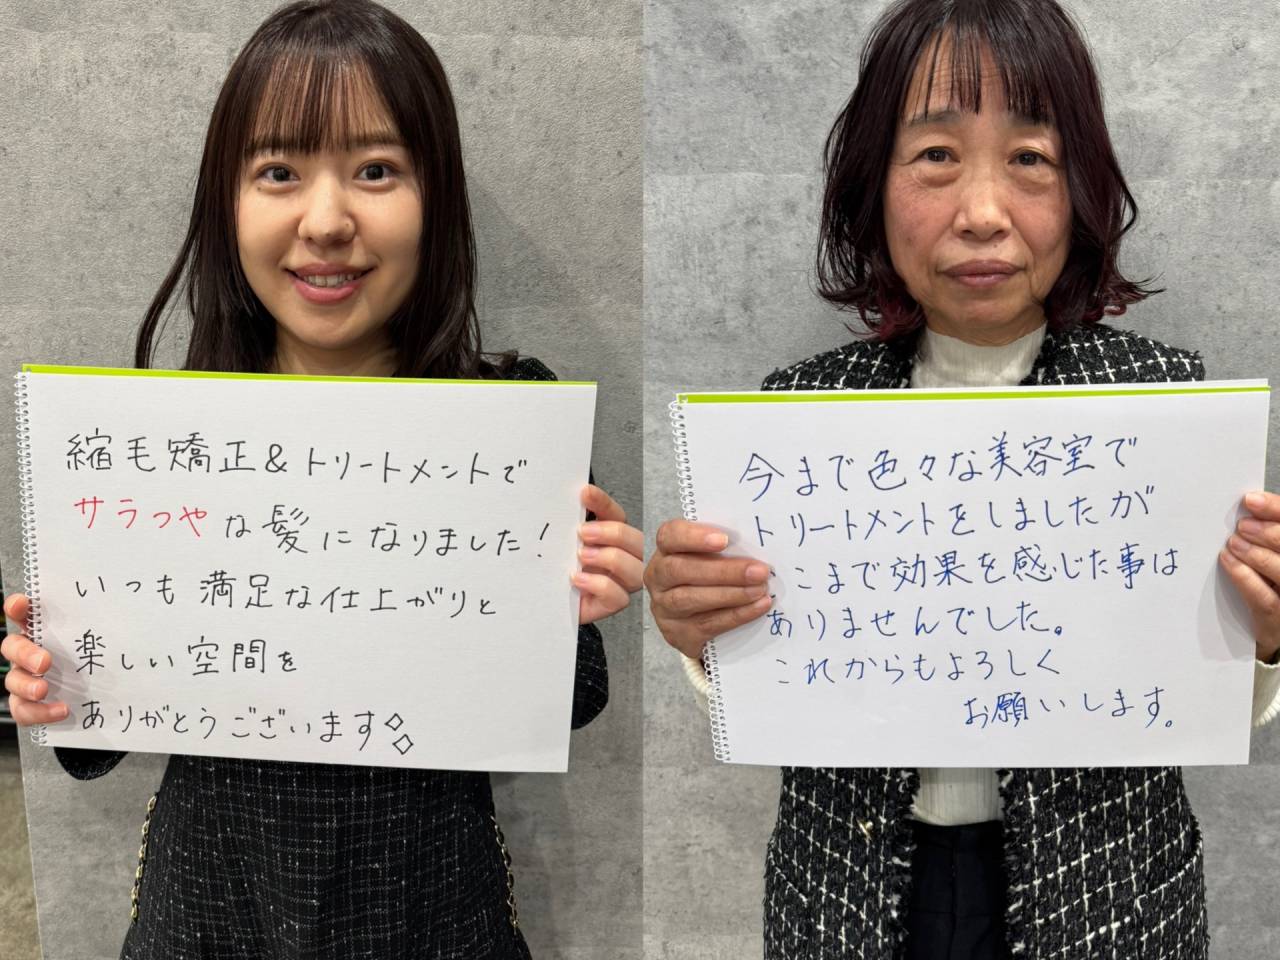 縮毛矯正&トリートメントで
サラつやな髪になりました!
いつも満足な仕上がりと
楽しい空間を
ありがとうございます
今まで色々な美容室で
トリートメントをしましたが
こまで効果を感じた事は
ありませんでした。
これからもよろしく
お願いします。